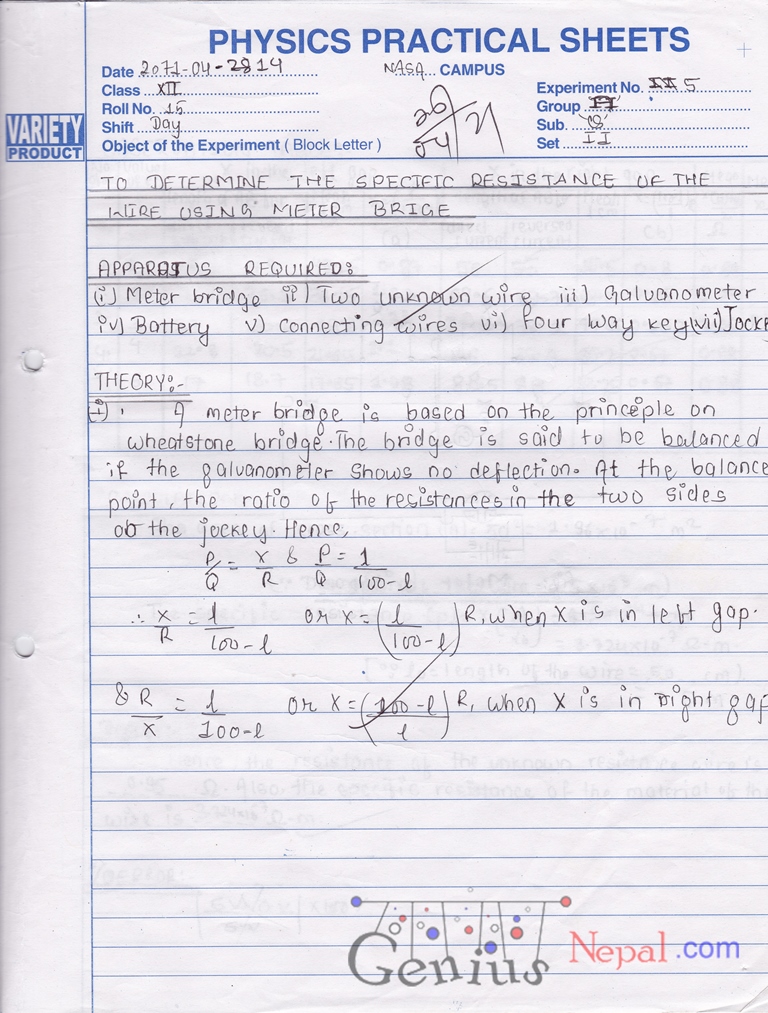 PHYSICS PRACTICAL SHEETS
Date 2071-04-2814 NASA CAMPUS
Class XII Experiment No. 5
Roll No. 15 Group
Shift Day Sub.
Object of the Experiment ( Block Letter ) Set II
VARIETY
PRODUCT
TO DETERMINE THE SPECIFIC RESISTANCE OF THE
WIRE USING METER BRIGE
APPARATUS REQUIRED:
(i) Meter bridge ii) Two unknown wire iii) Galvanometer
iv) Battery v) connecting wires vi) Four way key (vii) Jocke
THEORY:-
A meter bridge is based on the principle on
wheatstone bridge. The bridge is said to be balanced
if the galvanometer shows no deflection. At the balance
point, the ratio of the resistances in the two sides
of the jockey. Hence,
P/Q = X/R & P/Q = l/100-l
∴ X/R = l/100-l or X = (l/100-l) R, when X is in left gap.
& R/X = l/100-l or X = (100-l/l) R, when X is in right gap
Genius Nepal.com